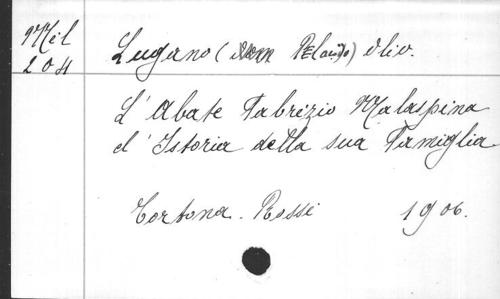 Mil
204
Lugano (Don Placido) oliv.
L'Abate Fabrizio Malaspina
e l'Istoria della sua Famiglia
Tortona. Rossi 1906.